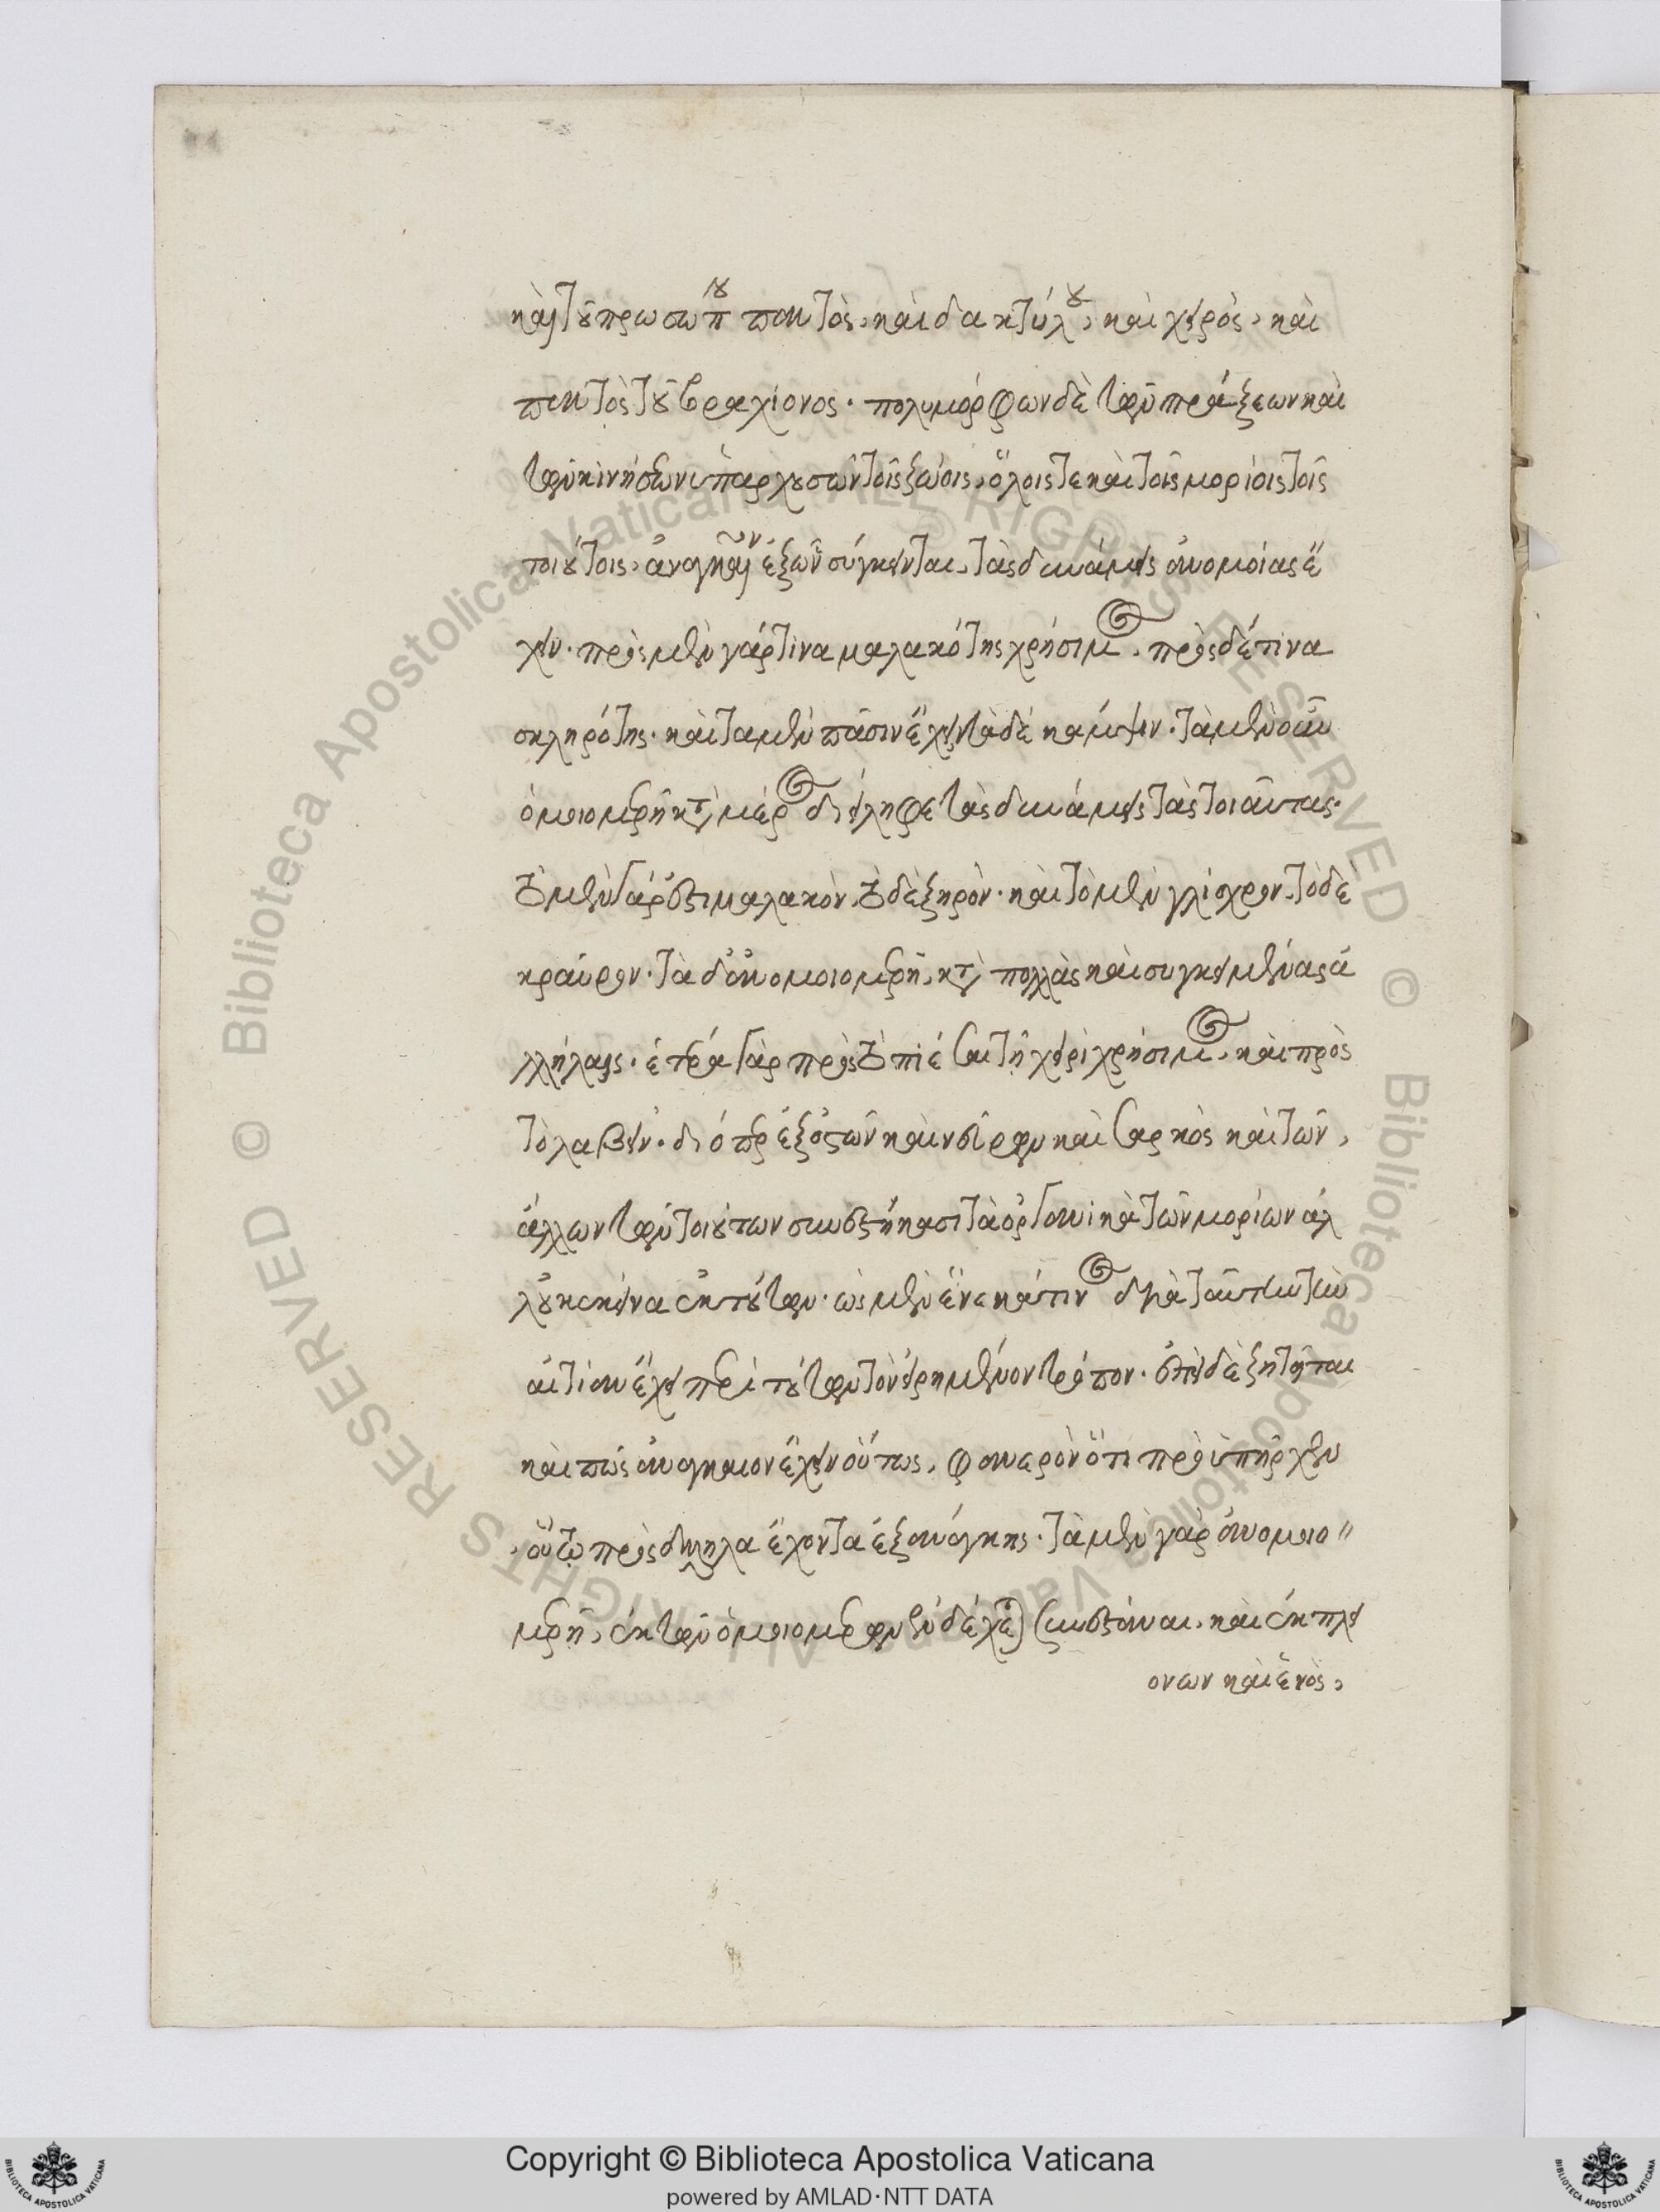 καὶ τοῦ προσώπου παντὸς, καὶ δακτύλου, καὶ χειρὸς, καὶ
παντὸς τοῦ βραχίονος. πολυμόρφων δὲ τῶν πράξεων καὶ
τῶν κινήσεων ὑπαρχουσῶν τοῖς ζώοις, ὅλοις τε καὶ τοῖς μορίοις τοῖς
τοιούτοις, ἀναγκαῖον ἐξ ὧν σύγκεινται, τὰς δυνάμεις ἀνομοίας ἔ
χειν. πρὸς μὲν γάρ τινα μαλακότης χρήσιμος, πρὸς δέ τινα
σκληρότης. καὶ τὰ μὲν τάσιν ἔχειν τὰ δὲ κάμψιν. τὰ μὲν οὖν
ὁμοιομερῆ κατὰ μέρος διείληφε τὰς δυνάμεις τὰς τοιαύτας.
τὸ μὲν γάρ ἐστι μαλακὸν, τὸ δὲ ξηρόν. καὶ τὸ μὲν γλίσχρον, τὸ δὲ
κραῦρον. τὰ δ' ἀνομοιομερῆ, κατὰ πολλὰς καὶ συγκειμένας ἀ
λλήλαις. ἑτέρα γὰρ πρὸς τὸ πιέσαι τῇ χειρὶ χρήσιμος, καὶ πρὸς
τὸ λαβεῖν. διόπερ ἐξ ὀστῶν καὶ νεύρων καὶ σαρκὸς καὶ τῶν,
ἄλλων τῶν τοιούτων συνεστήκασι τὰ ὀργανικὰ τῶν μορίων ἀλ
λ' οὐκ ἐκεῖνα ἐκ τούτων. ὡς μὲν ἕνεκά τινος διὰ ταύτην τὴν
αἰτίαν ἔχει περὶ τούτων τὸν εἰρημένον τρόπον. ἐπεὶ δὲ ζητεῖται
καὶ πῶς ἀναγκαῖον ἔχειν οὕτως, φανερὸν ὅτι προϋπῆρχεν
οὕτω πρὸς ἄλληλα ἔχοντα ἐξ ἀνάγκης. τὰ μὲν γὰρ ἀνομοιο
μερῆ, ἐκ τῶν ὁμοιομερῶν ἐνδέχεται συνεστάναι, καὶ ἐκ πλει
όνων καὶ ἑνὸς,
Copyright © Biblioteca Apostolica Vaticana
powered by AMLAD·NTT DATA